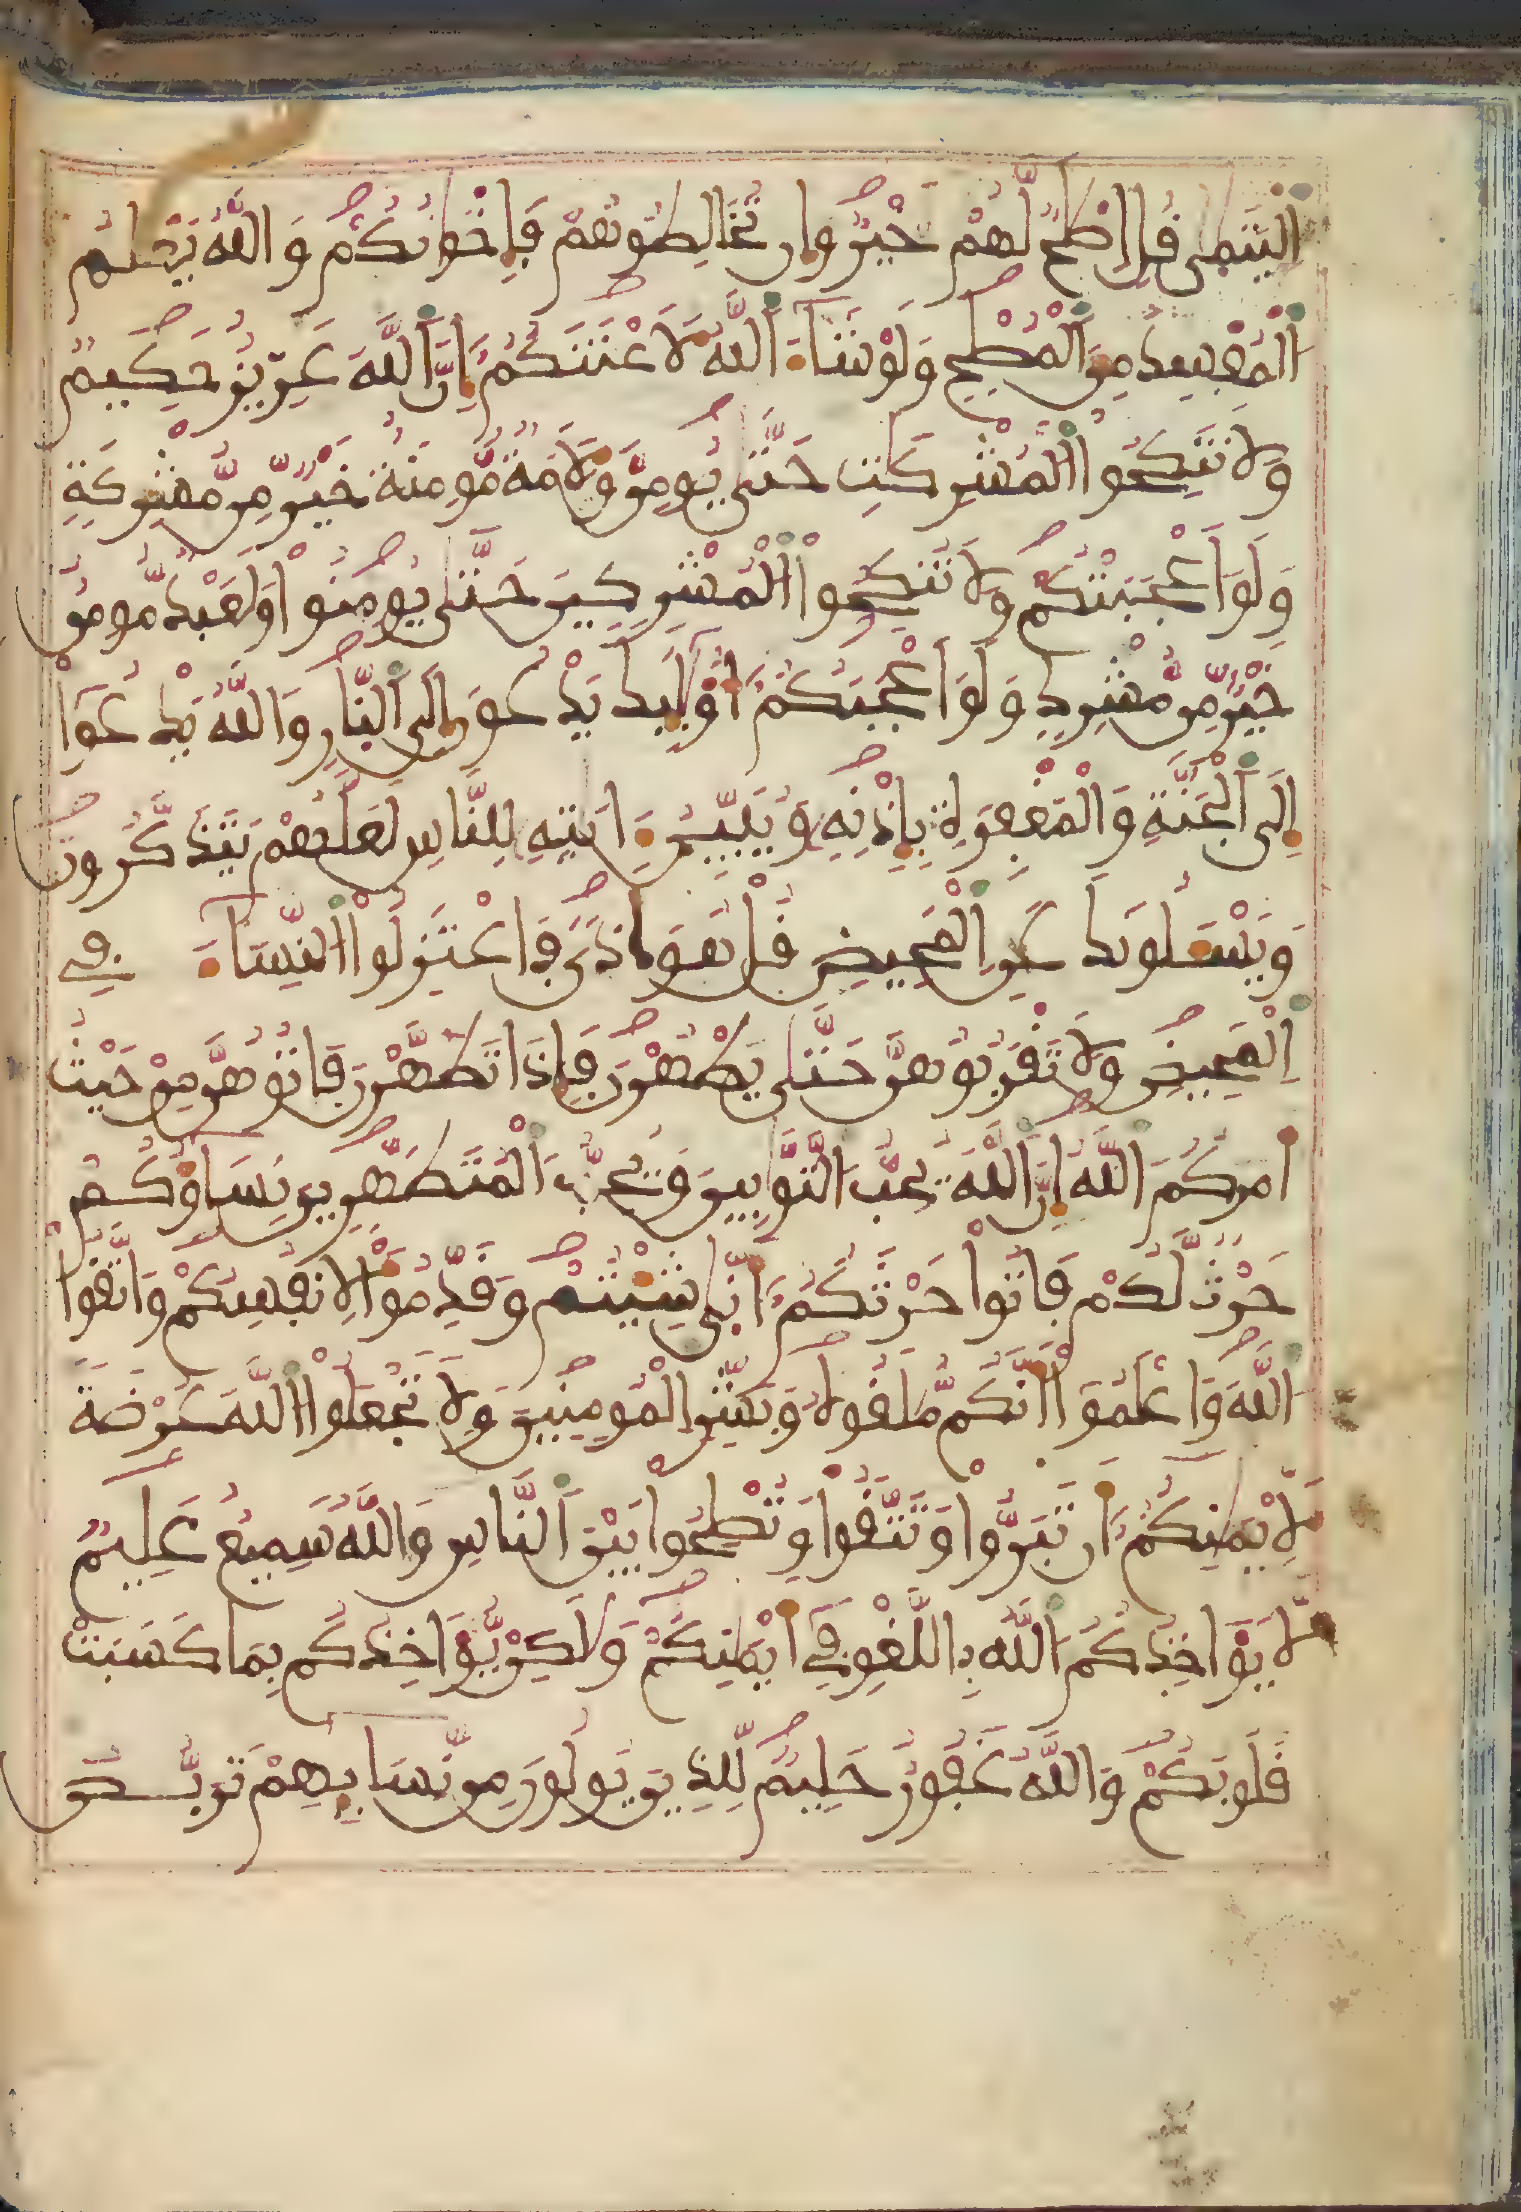 الْيَتَٰمَىٰ قُلِ اصْلَٰحٌ لَّهُمْ خَيْرٌ وَإِن تُخَالِطُوهُمْ فَإِخْوَٰنُكُمْ وَاللَّهُ يَعْلَمُ
الْمُفْسِدَ مِنَ الْمُصْلِحِ وَلَوْ شَآءَ اللَّهُ لَأَعْنَتَكُمُ إِنَّ اللَّهَ عَزِيزٌ حَكِيمٌ
وَلَا تَنكِحُوا الْمُشْرِكَٰتِ حَتَّىٰ يُومِنَّ وَلَأَمَةٌ مُّومِنَةٌ خَيْرٌ مِّن مُّشْرِكَةٍ
وَلَوَ اَعْجَبَتْكُمْ وَلَا تُنكِحُوا الْمُشْرِكِينَ حَتَّىٰ يُومِنُوا وَلَعَبْدٌ مُّومِنٌ
خَيْرٌ مِّن مُّشْرِكٍ وَلَوَ اَعْجَبَكُمُ أُوْلَٰئِكَ يَدْعُونَ إِلَى النَّارِ وَاللَّهُ يَدْعُوا
إِلَى الْجَنَّةِ وَالْمَغْفِرَةِ بِإِذْنِهِ وَيُبَيِّنُ ءَايَٰتِهِ لِلنَّاسِ لَعَلَّهُمْ يَتَذَكَّرُونَ
وَيَسْـَٔلُونَكَ عَنِ الْمَحِيضِ قُلْ هُوَ أَذًى فَاعْتَزِلُوا النِّسَآءَ فِي
الْمَحِيضِ وَلَا تَقْرَبُوهُنَّ حَتَّىٰ يَطْهُرْنَ فَإِذَا تَطَهَّرْنَ فَاتُوهُنَّ مِنْ حَيْثُ
أَمَرَكُمُ اللَّهُ إِنَّ اللَّهَ يُحِبُّ التَّوَّٰبِينَ وَيُحِبُّ الْمُتَطَهِّرِينَ نِسَاؤُكُمْ
حَرْثٌ لَّكُمْ فَاتُوا حَرْثَكُمُ أَنَّىٰ شِئْتُمْ وَقَدِّمُوا لِأَنفُسِكُمْ وَاتَّقُوا
اللَّهَ وَاعْلَمُوا أَنَّكُم مُّلَٰقُوهُ وَبَشِّرِ الْمُومِنِينَ وَلَا تَجْعَلُوا اللَّهَ عُرْضَةً
لِّأَيْمَٰنِكُمُ أَن تَبَرُّوا وَتَتَّقُوا وَتُصْلِحُوا بَيْنَ النَّاسِ وَاللَّهُ سَمِيعٌ عَلِيمٌ
لَّا يُوَاخِذُكُمُ اللَّهُ بِاللَّغْوِ فِي أَيْمَٰنِكُمْ وَلَٰكِن يُّوَاخِذُكُم بِمَا كَسَبَتْ
قُلُوبُكُمْ وَاللَّهُ غَفُورٌ حَلِيمٌ لِّلَّذِينَ يُولُونَ مِن نِّسَآئِهِمْ تَرَبُّصُ